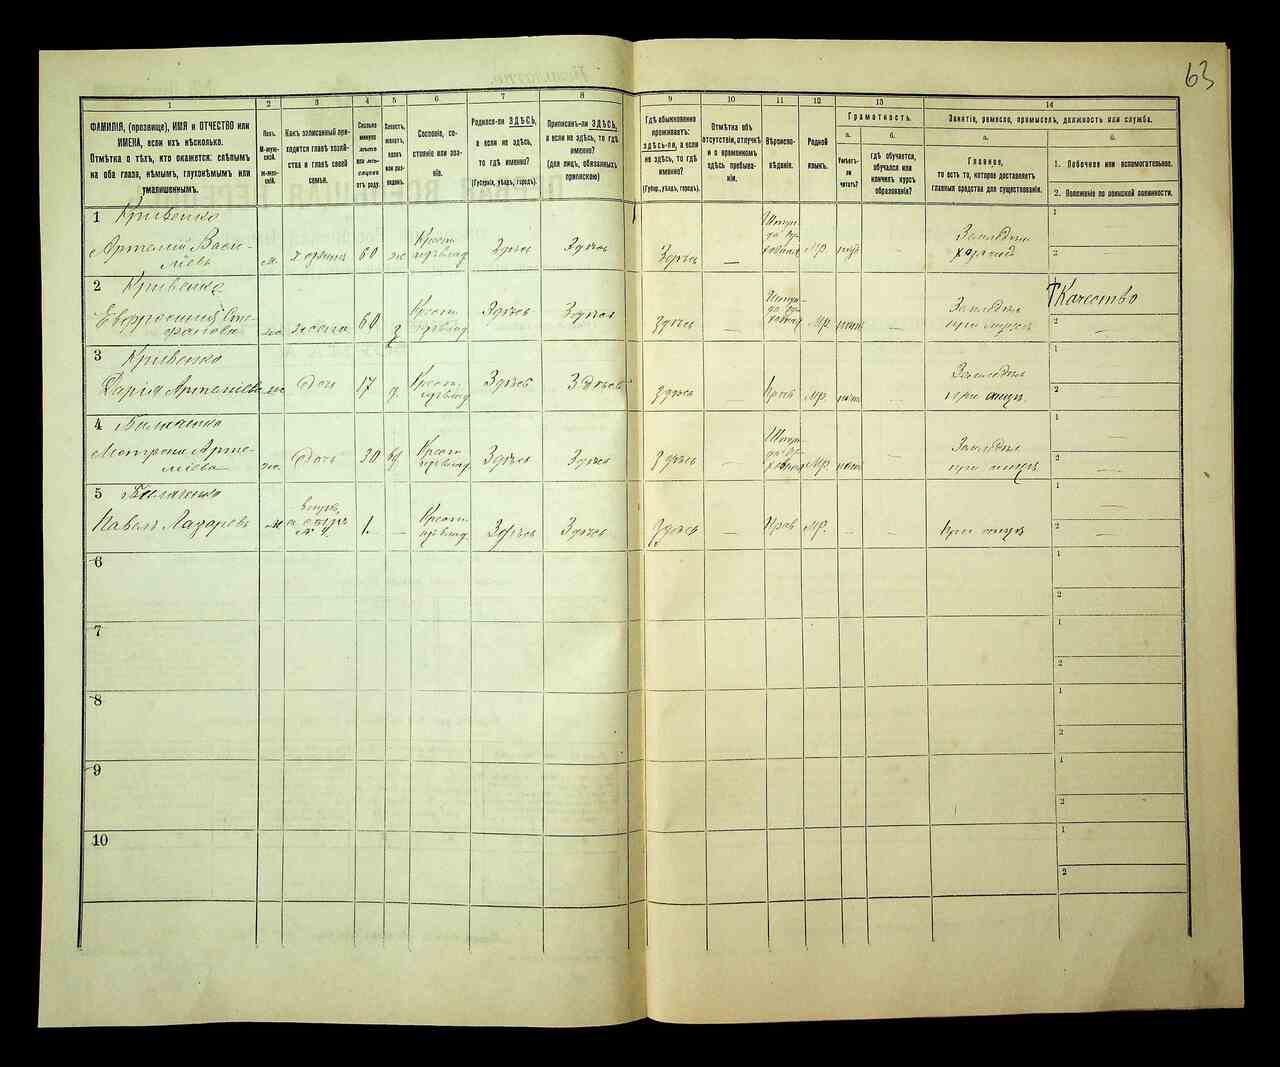 63
1 2 3 4 5 6 7 8 9 10 11 12 13 14
ФАМИЛІЯ, (прозвище), ИМЯ и ОТЧЕСТВО или
ИМЕНА, если ихъ нѣсколько.
Отмѣтка о тѣхъ, кто окажется: слѣпымъ
на оба глаза, нѣмымъ, глухонѣмымъ или
умалишеннымъ.
Полъ.
М-муж-
ской.
Ж-жен-
скій.
Какъ записанный при-
ходится главѣ хозяй-
ства и главѣ своей
семьи.
Сколько
минуло
лѣтъ
или мѣ-
сяцевъ
отъ роду.
Холостъ,
женатъ,
вдовъ
или раз-
веденъ.
Сословіе, со-
стояніе или зва-
ніе.
Родился-ли ЗДѢСЬ,
а если не здѣсь,
то гдѣ именно?
(Губернія, уѣздъ, городъ).
Приписанъ-ли ЗДѢСЬ,
а если не здѣсь, то гдѣ
именно?
(для лицъ, обязанныхъ
припискою)
Гдѣ обыкновенно
проживаетъ:
здѣсь-ли, а если
не здѣсь, то гдѣ
именно?
(Губер., уѣздъ, городъ).
Отмѣтка объ
отсутствіи, отлучкѣ
и о временномъ
здѣсь пребыва-
ніи.
Вѣроиспо-
вѣданіе.
Родной
языкъ.
Грамотность.
а. б.
Умѣетъ-
ли
читать?
гдѣ обучается,
обучался или
кончилъ курсъ
образованія?
Занятіе, ремесло, промыселъ, должность или служба.
а. б.
Главное,
то есть то, которое доставляетъ
главныя средства для существованія.
1. Побочное или вспомогательное.
2. Положеніе по воинской повинности.
1 Кривенко
Артемій Васи-
ліевъ
м. хозяинъ 60 Здѣсь Здѣсь Здѣсь — МР нѣтъ
1
2
2 Кривенко
Евфросинія Сте-
фанова
жена 60 Здѣсь Здѣсь Здѣсь МР. нѣтъ
при мужѣ
Качество
2
3 Кривенко
Дарія Артеміева
Дочь 17 д. Здѣсь Здѣсь Здѣсь — Прав МР. нѣтъ
при отцѣ
1
2
4
Мотрона Арте-
міева
Дочь 30 Здѣсь Здѣсь Здѣсь — МР. нѣтъ
при отцѣ
1
2
5
Павелъ Лазаревъ
м 1. — Здѣсь Здѣсь Здѣсь — Прав МР. — —
При отцѣ
1
2
6
1
2
7
1
2
8
1
2
9
1
2
10
1
2